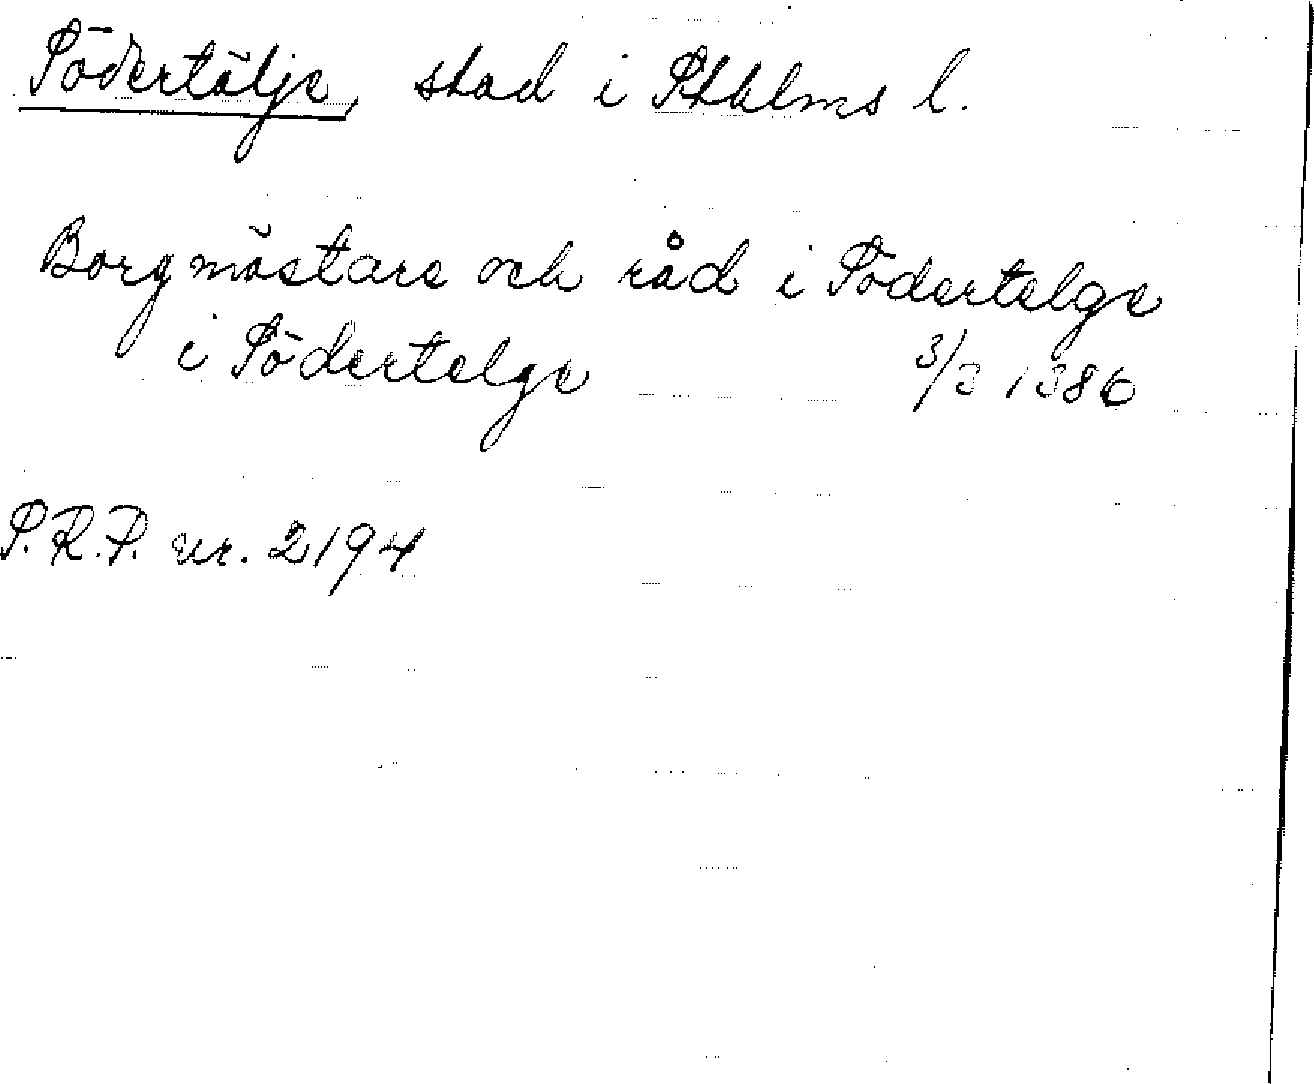 Södertälje, stad i Sthlms l.
Borgmästare och råd i Södertelge
i Södertelge 3/3 1386
S.R.P. nr. 2194